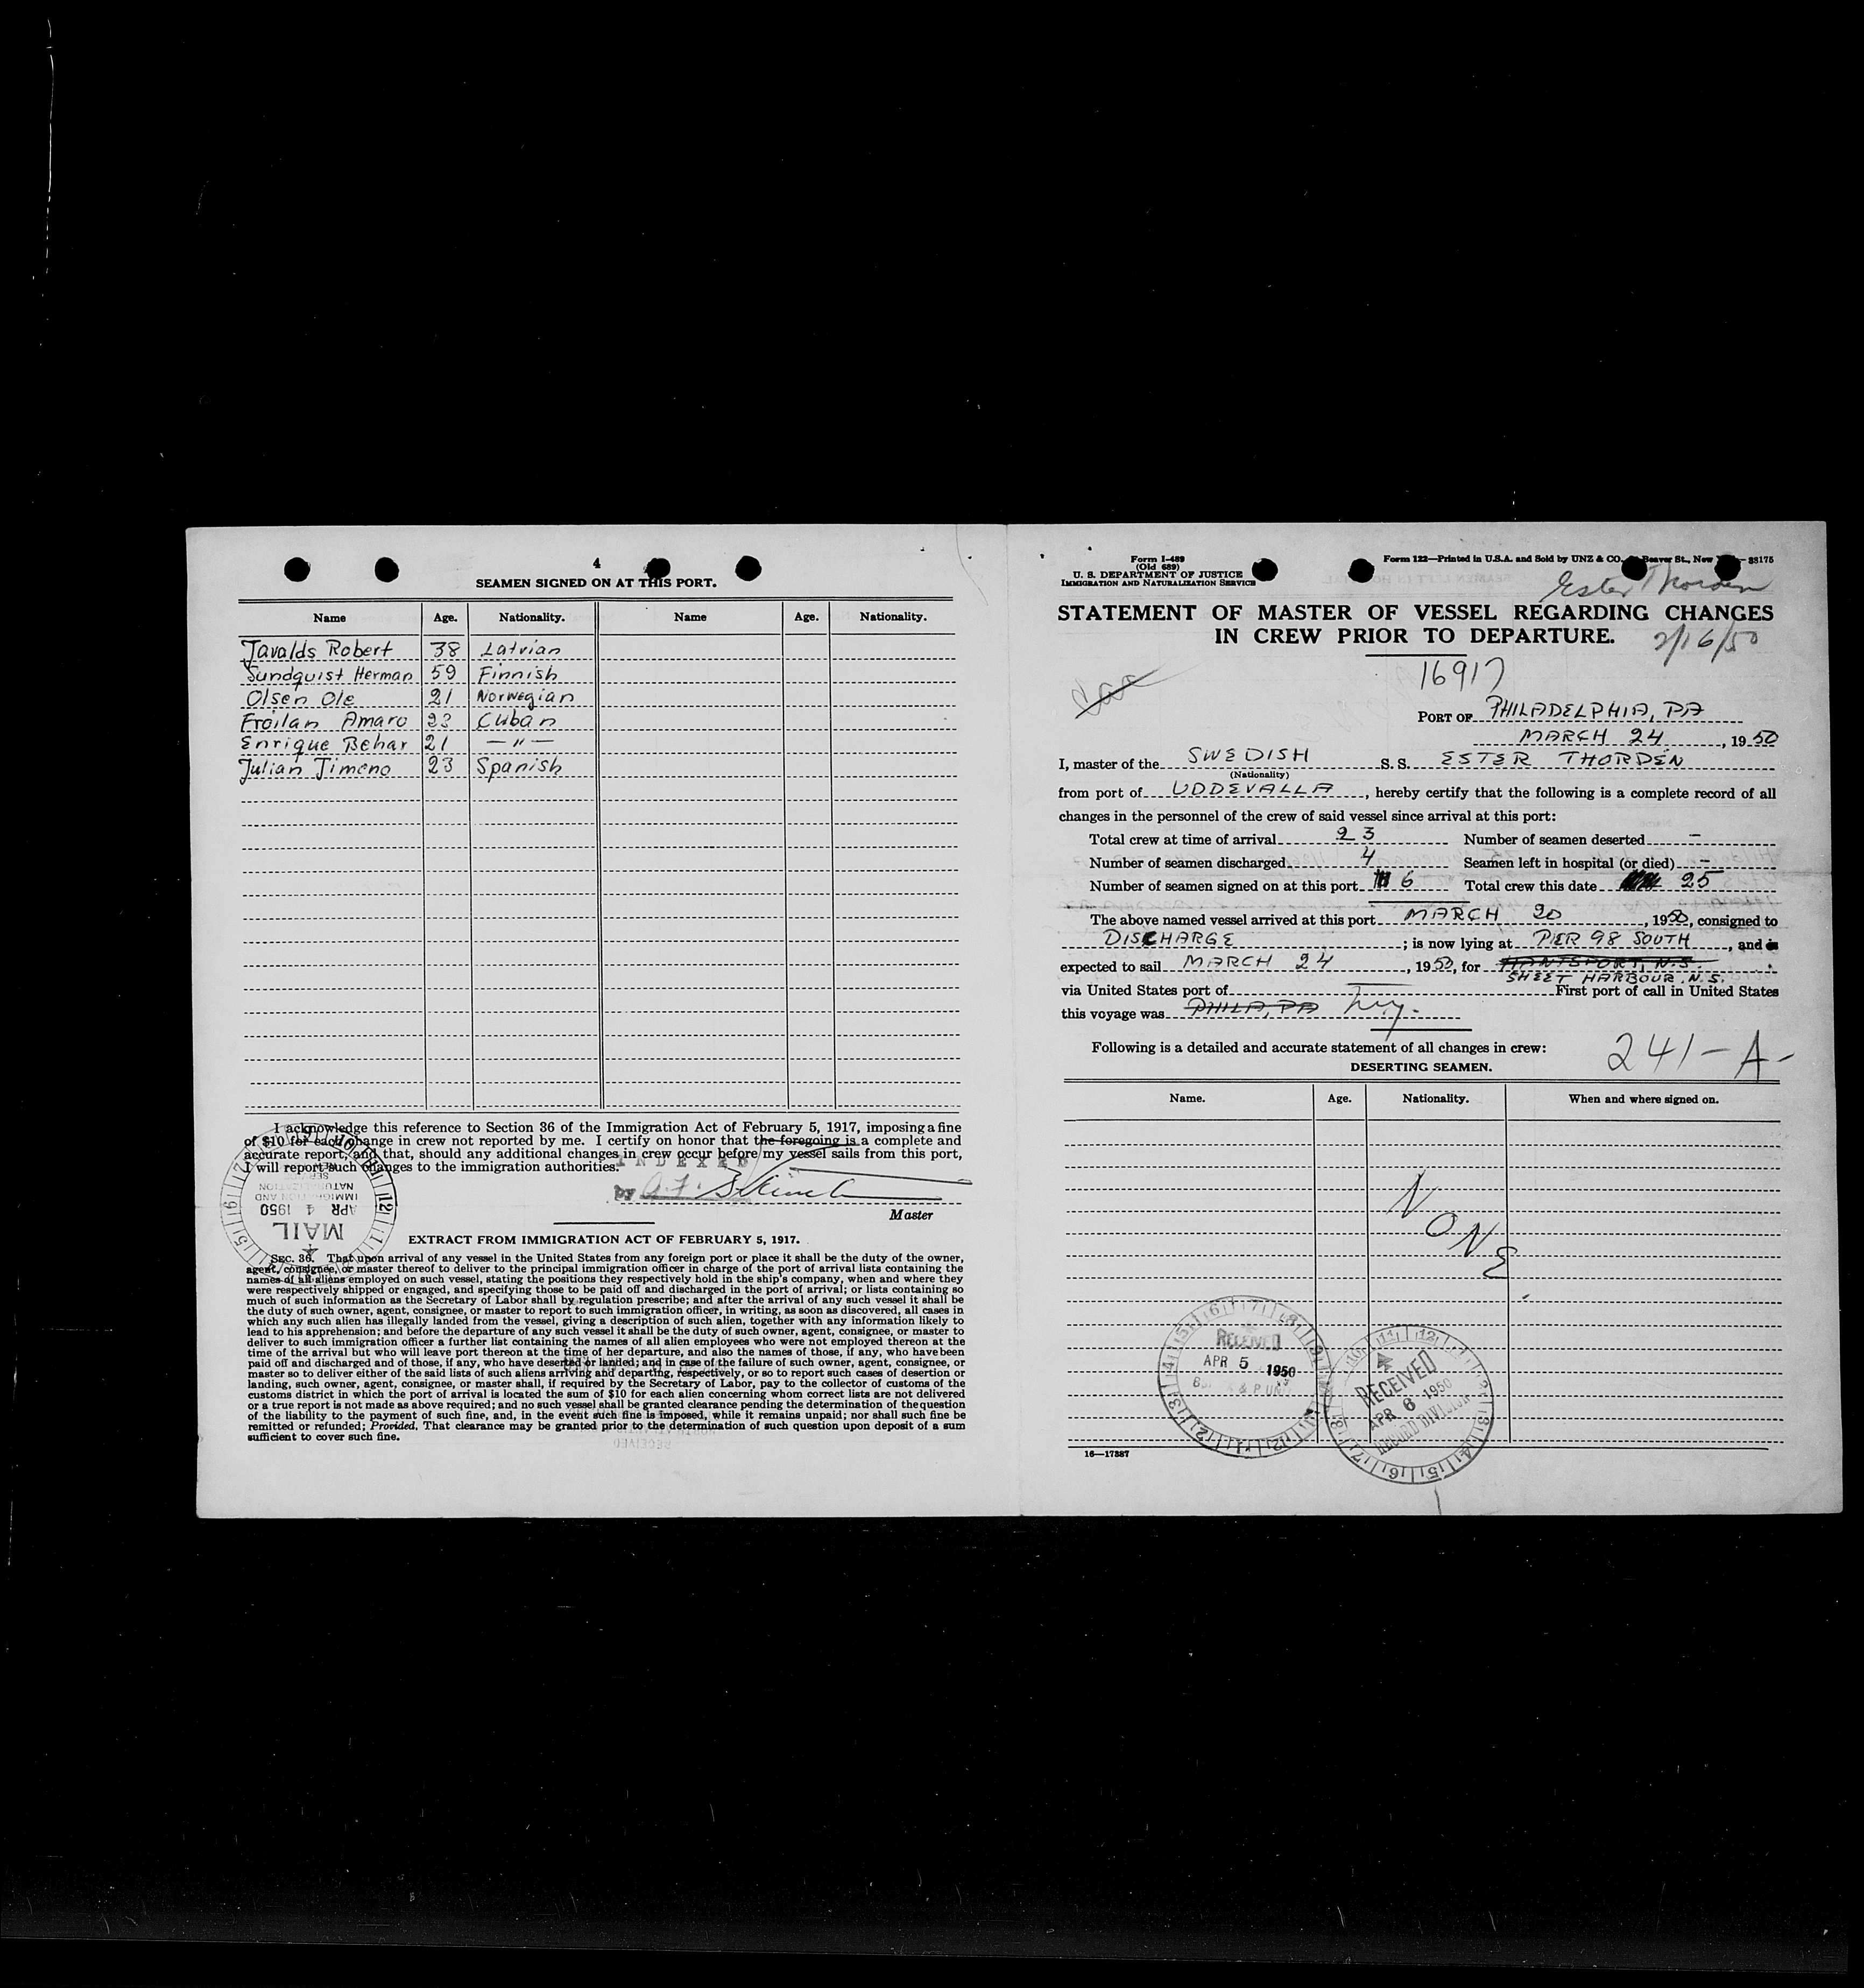 4
SEAMEN SIGNED ON AT THIS PORT.
Name Age. Nationality. Name Age. Nationality.
Javalds Robert 38 Latvian
Sundquist Herman 59 Finnish
Olsen Ole 21 Norwegian
Froilan Amaro 23 Cuban
Enrique Behar 21 — " —
Julian Jimeno 23 Spanish
I acknowledge this reference to Section 36 of the Immigration Act of February 5, 1917, imposing a fine
of $10 for each change in crew not reported by me. I certify on honor that the foregoing is a complete and
accurate report, and that, should any additional changes in crew occur before my vessel sails from this port,
I will report such changes to the immigration authorities.
INDEXED
by
Master
MAIL
APR 4 1950
IMMIGRATION AND
NATURALIZATION
EXTRACT FROM IMMIGRATION ACT OF FEBRUARY 5, 1917.
SEC. 36. That upon arrival of any vessel in the United States from any foreign port or place it shall be the duty of the owner,
agent, consignee, or master thereof to deliver to the principal immigration officer in charge of the port of arrival lists containing the
names of all aliens employed on such vessel, stating the positions they respectively hold in the ship's company, when and where they
were respectively shipped or engaged, and specifying those to be paid off and discharged in the port of arrival; or lists containing so
much of such information as the Secretary of Labor shall by regulation prescribe; and after the arrival of any such vessel it shall be
the duty of such owner, agent, consignee, or master to report to such immigration officer, in writing, as soon as discovered, all cases in
which any such alien has illegally landed from the vessel, giving a description of such alien, together with any information likely to
lead to his apprehension; and before the departure of any such vessel it shall be the duty of such owner, agent, consignee, or master to
deliver to such immigration officer a further list containing the names of all alien employees who were not employed thereon at the
time of the arrival but who will leave port thereon at the time of her departure, and also the names of those, if any, who have been
paid off and discharged and of those, if any, who have deserted or landed; and in case of the failure of such owner, agent, consignee, or
master so to deliver either of the said lists of such aliens arriving and departing, respectively, or so to report such cases of desertion or
landing, such owner, agent, consignee, or master shall, if required by the Secretary of Labor, pay to the collector of customs of the
customs district in which the port of arrival is located the sum of $10 for each alien concerning whom correct lists are not delivered
or a true report is not made as above required; and no such vessel shall be granted clearance pending the determination of the question
of the liability to the payment of such fine, and, in the event such fine is imposed, while it remains unpaid; nor shall such fine be
remitted or refunded; Provided, That clearance may be granted prior to the determination of such question upon deposit of a sum
sufficient to cover such fine.
Form I-489
(Old 689)
U. S. DEPARTMENT OF JUSTICE
IMMIGRATION AND NATURALIZATION SERVICE
Form 122—Printed in U.S.A. and Sold by UNZ & CO., Beaver St., New 33175
Ester Thorden
STATEMENT OF MASTER OF VESSEL REGARDING CHANGES
IN CREW PRIOR TO DEPARTURE.
2/16/50
16917
PORT OF PHILADELPHIA, PA
MARCH 24, 1950
I, master of the SWEDISH S. S. ESTER THORDÉN
(Nationality)
from port of UDDEVALLA, hereby certify that the following is a complete record of all
changes in the personnel of the crew of said vessel since arrival at this port:
Total crew at time of arrival 23 Number of seamen deserted —
Number of seamen discharged 4 Seamen left in hospital (or died) —
Number of seamen signed on at this port 6 Total crew this date 25
The above named vessel arrived at this port MARCH 20, 1950, consigned to
DISCHARGE; is now lying at PIER 98 SOUTH, and is
expected to sail MARCH 24, 1950, for HANTSPORT, N.S.
SHEET HARBOUR. N.S.
via United States port of First port of call in United States
this voyage was PHILA, PA
Following is a detailed and accurate statement of all changes in crew:
241-A-
DESERTING SEAMEN.
Name. Age. Nationality. When and where signed on.
NONE
RECEIVED
APR 5 1950
RECEIVED
APR 6 1950
RECORD DIVISION
16—17887